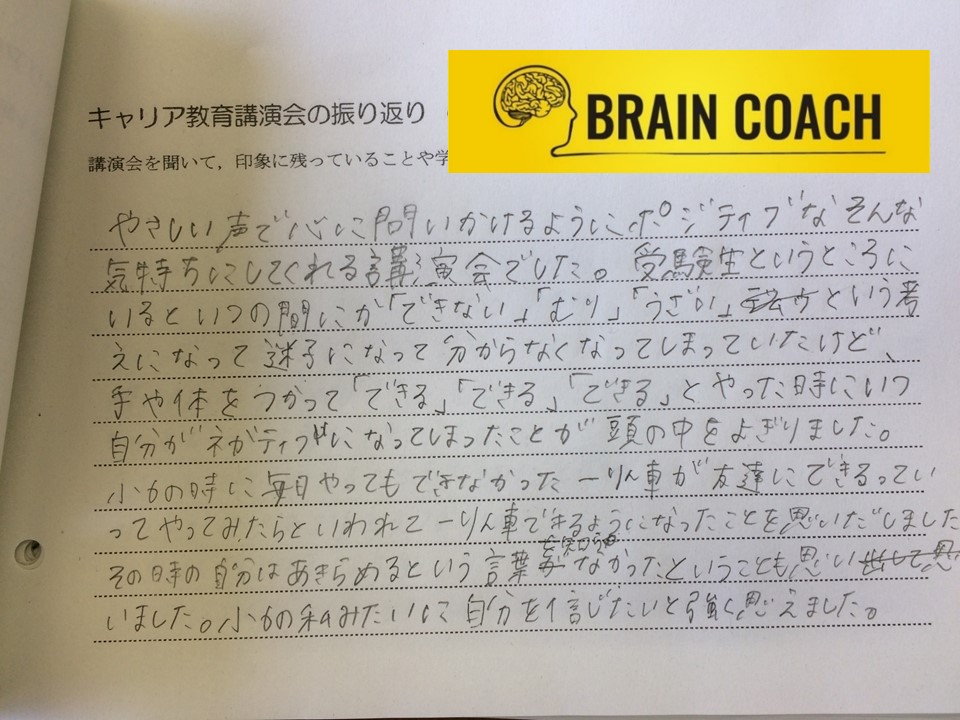 キャリア教育講演会の振り返り
BRAIN COACH
講演会を聞いて，印象に残っていることや学
やさしい声で心に問いかけるようにポジティブなそんな
気持ちにしてくれる講演会でした。受験生というところに
いるといつの間にか「できない」「むり」「うざい」という考
えになって迷子になって分からなくなってしまっていたけど、
手や体をつかって「できる」「できる」「できる」とやった時にいつ
自分がネガティブになってしまったことが頭の中をよぎりました。
小6の時に毎日やってもできなかった一りん車が友達にできるってい
ってやってみたらといわれて一りん車できるようになったことを思いだしました
その時の自分はあきらめるという言葉を知らなかったということも思い出して思
いました。小6の私みたいに自分を信じたいと強く思えました。